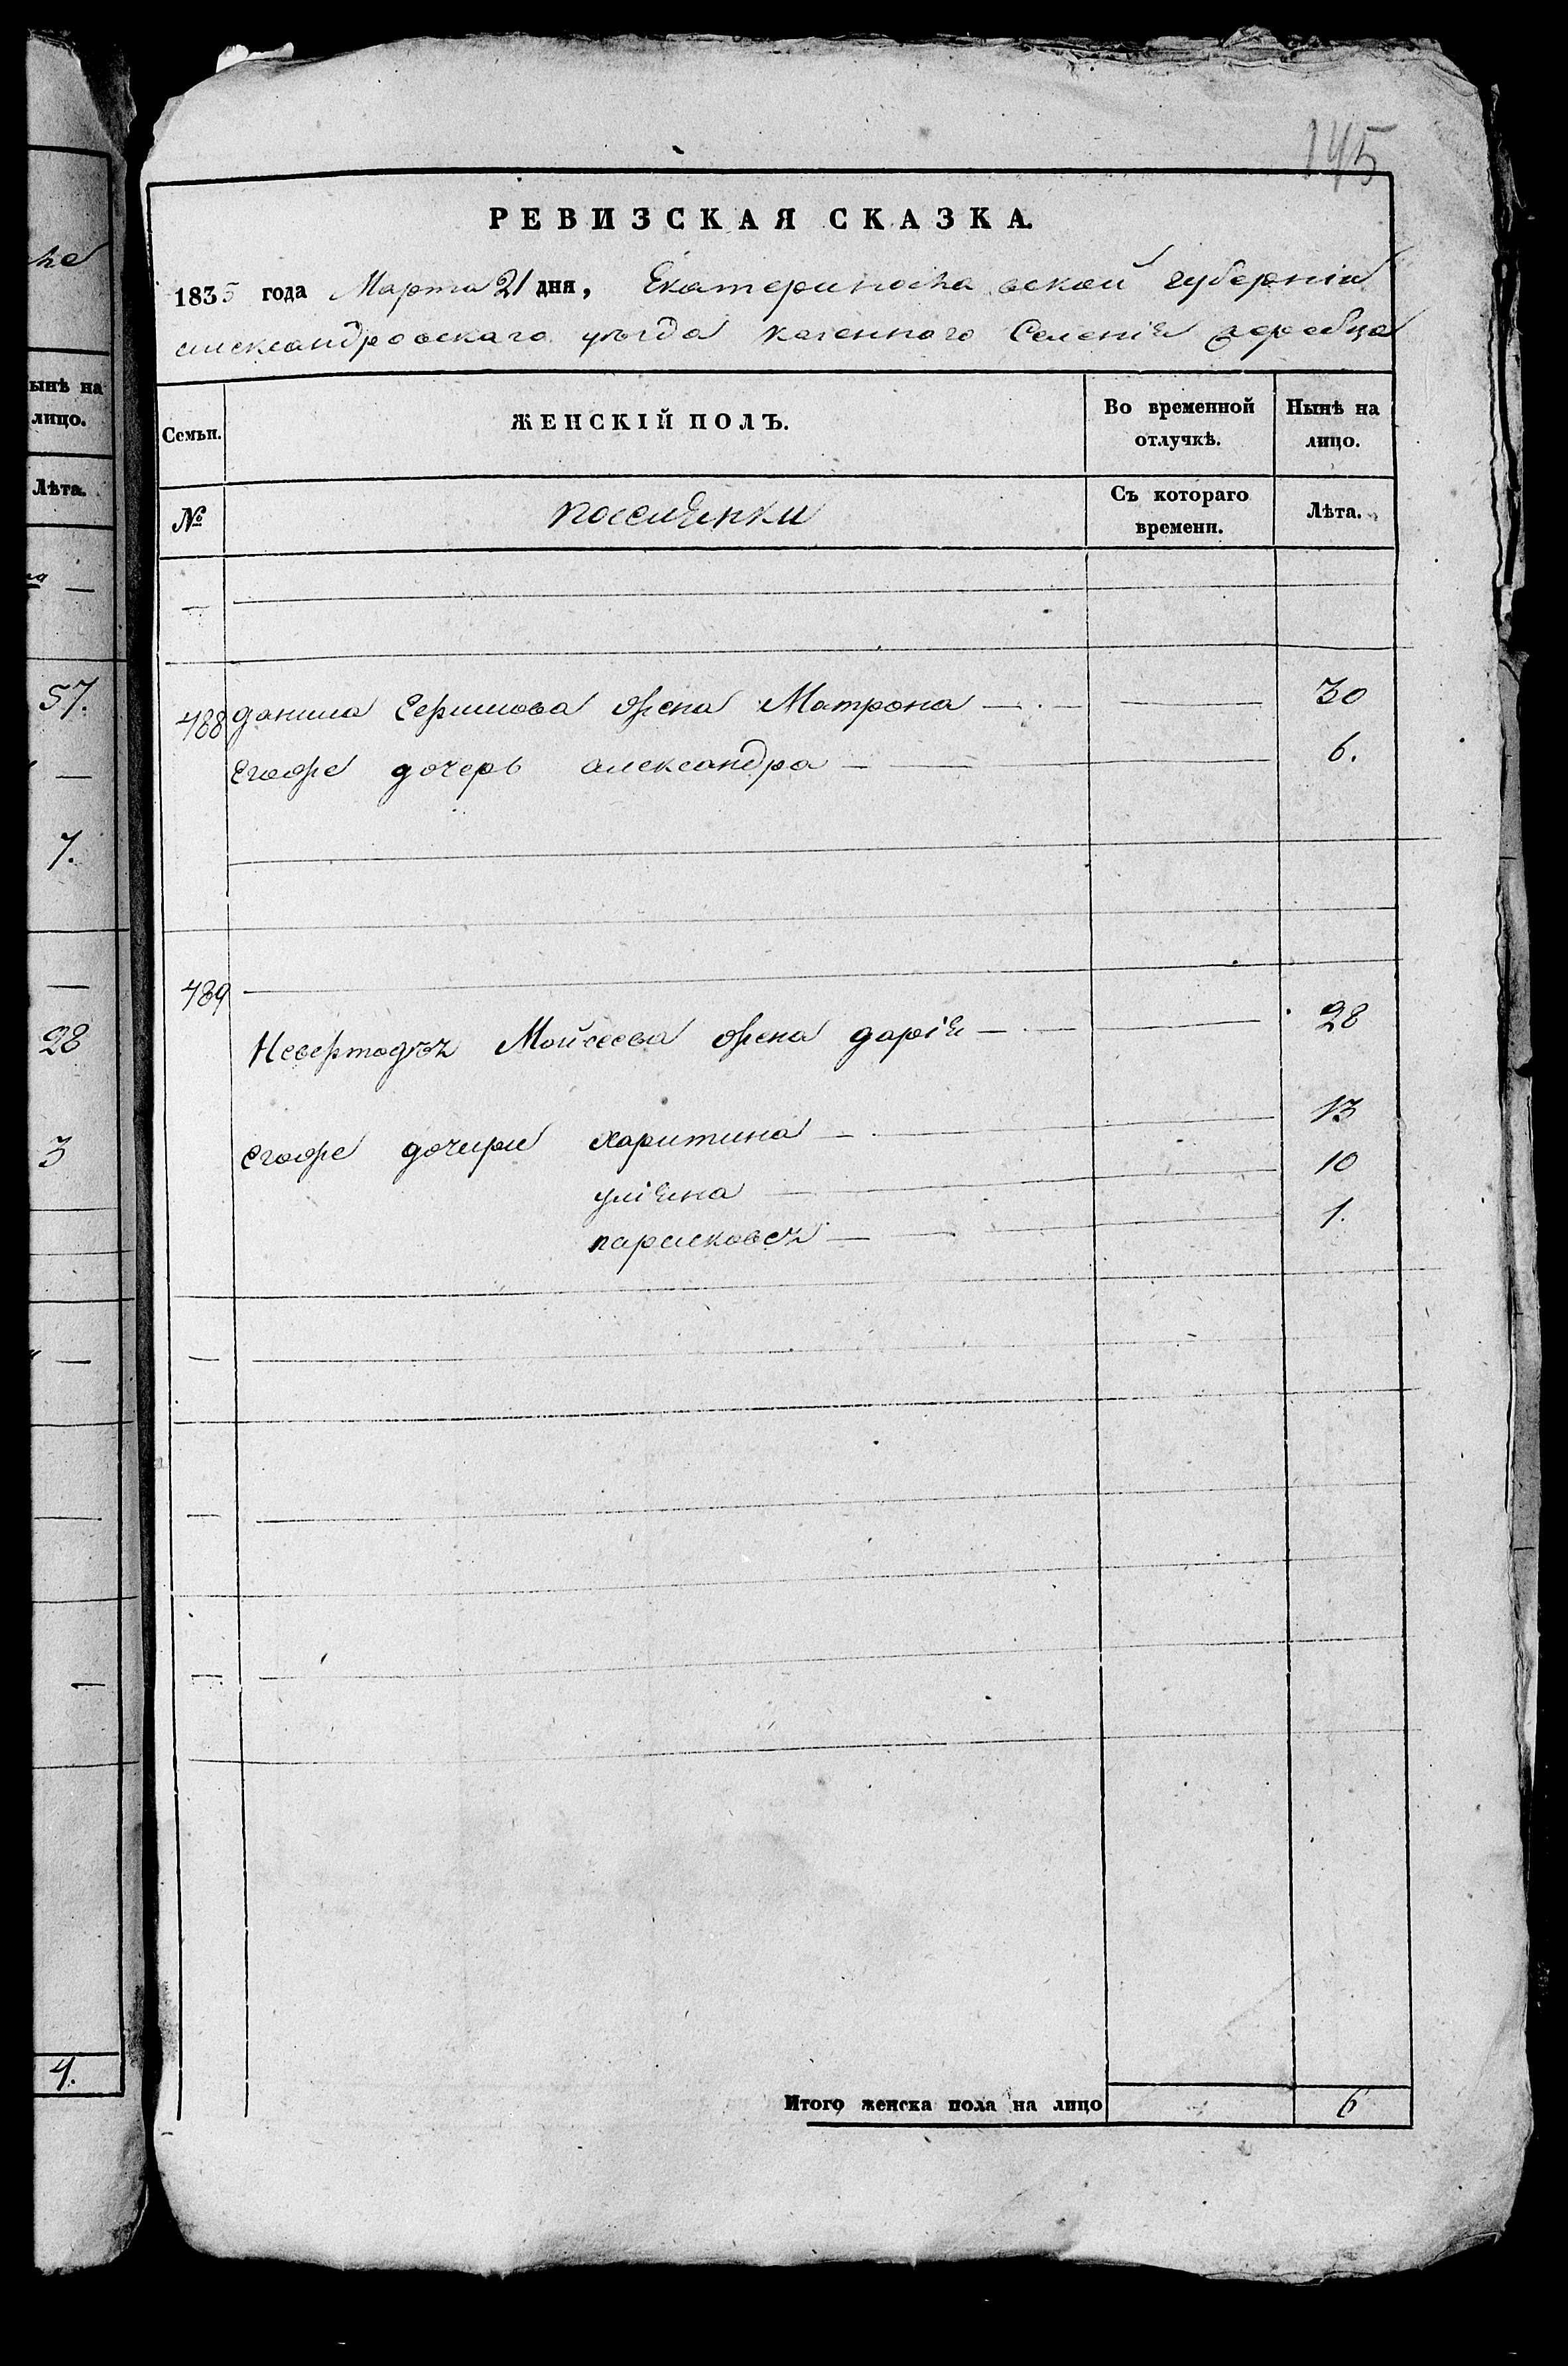 145
РЕВИЗСКАЯ СКАЗКА.
1835 года Марта 21 дня, Екатеринославской губерніи
александровскаго уѣзда казенного Селенія жеребца
Семьи. ЖЕНСКІЙ ПОЛЪ. Во временной отлучкѣ. Нынѣ на лицо.
№ поселянки Съ котораго времени. Лѣта.
488 данила Ефимова жена Матрона 30
Егоже дочерь александра 6.
489
Мойсеева жена дарія 28
егоже дочери харитина 13
уліяна 10
парасковея 1.
Итого женска пола на лицо 6
нынѣ на
лицо.
Лѣта.
57.
7.
28
3
4.